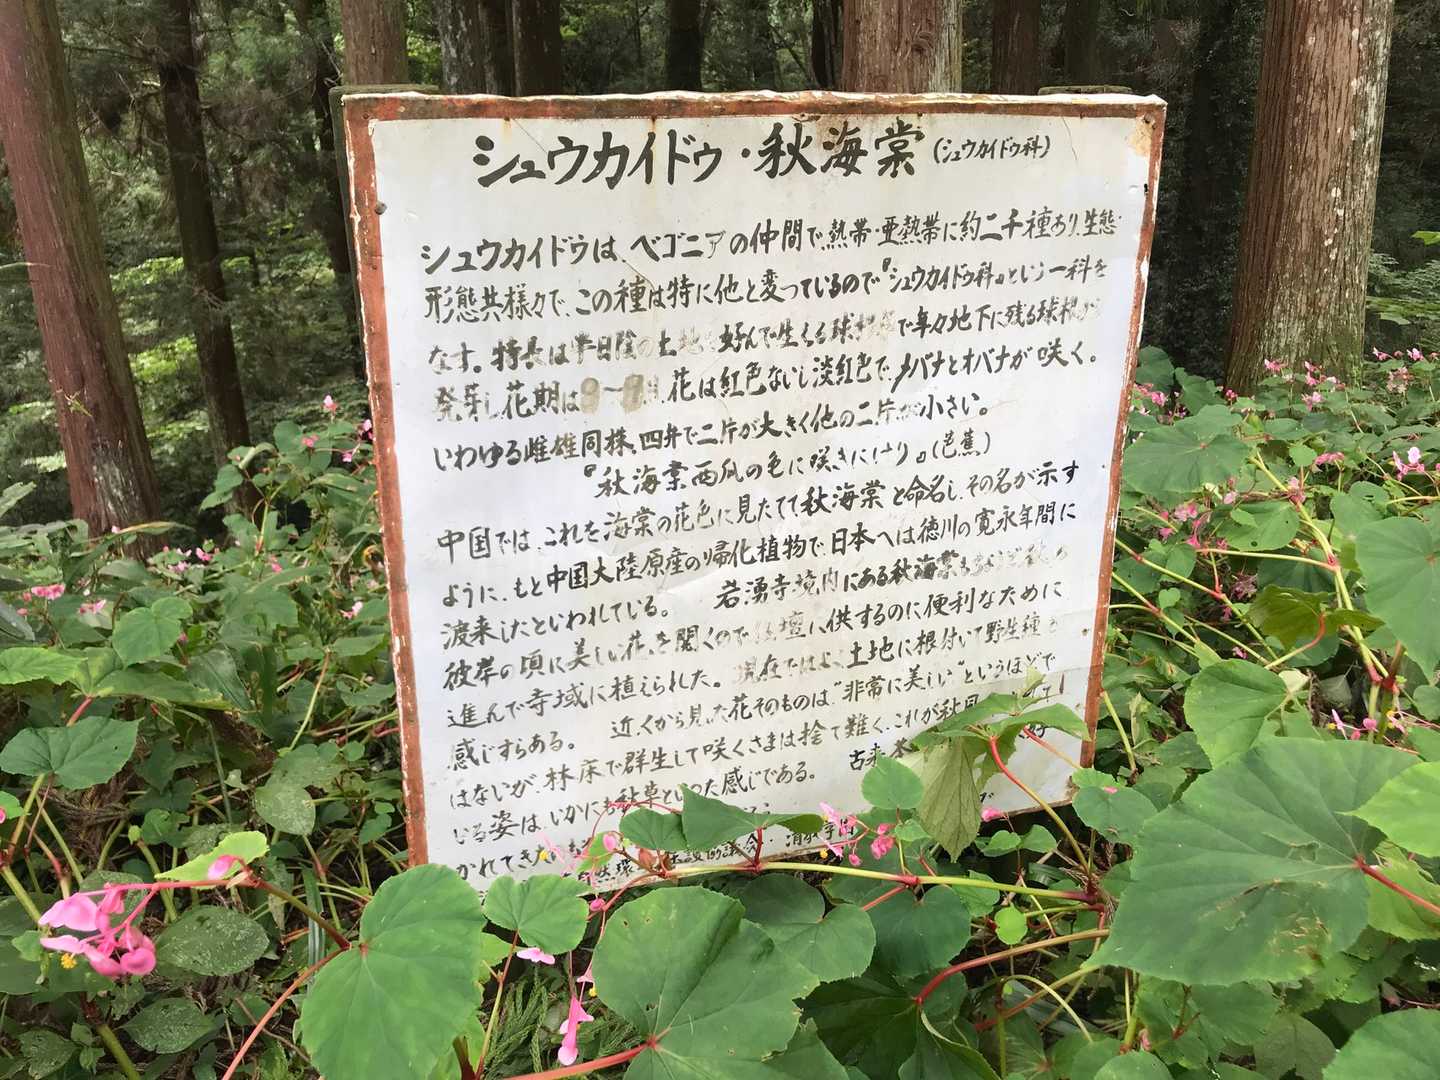 シュウカイドゥ・秋海棠(シュウカイドゥ科)
シュウカイドウは、ベゴニアの仲間で熱帯・亜熱帯に約二千種あり、生態・
形態共様々で、この種は特に他と変っているので『シュウカイドゥ科』という一科を
なす。特長は半日陰の土地を好んで生える球で年々地下に残る球根が
発芽し花期は 花は紅色ないし淡紅色で、メバナとオバナが咲く。
いわゆる雌雄同株、四弁で二片が大きく他の二片が小さい。
『秋海棠西瓜の色に咲きにけり』(芭蕉)
中国では、これを海棠の花色に見たてて秋海棠と命名し、その名が示す
ように、もと中国大陸原産の帰化植物で日本へは徳川の寛永年間に
渡来したといわれている。 岩湧寺境内にある秋海棠も
彼岸の頃に美しい花を開くので 壇に供するのに便利なために
進んで寺域に植えられた。現在ではよく土地に根付いて野生種を
感じすらある。 近くから見た花そのものは"非常に美しい"というほどで
はないが、林床で群生して咲くさまは捨て難く、これが秋
いる姿は、いかにも秋草といった感じである。 古来
かれてきた